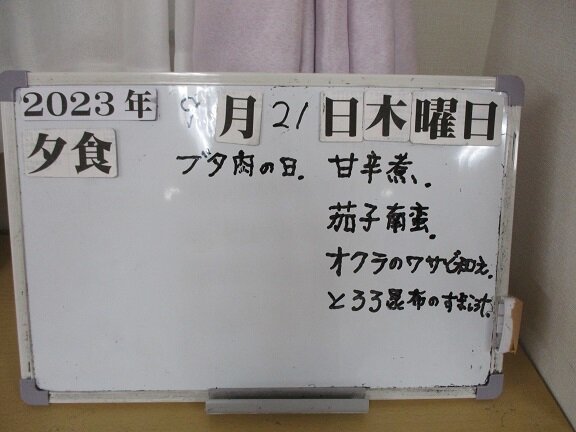 2023年 9月21日木曜日
夕食 ブタ肉の日. 甘辛煮.
茄子南蛮.
オクラのワサビ和え.
とろろ昆布のすまし汁.